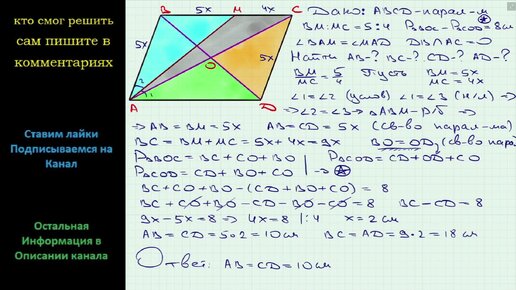 кто смог решить
сам пишите в
комментариях
Ставим лайки
Подписываемся на
Канал
Остальная
Информация в
Описании канала
B 5x M 4x C
5x 5x
O
2 1
A D
Дано: ABCD-парал-м
BM:MC=5:4 P_BOC-P_COD=8см
∠BAM=∠MAD BD∩AC=O
Найти AB-? BC-? CD-? AD-?
BM/MC=5/4 Пусть BM=5x
MC=4x
∠1=∠2 (услов) ∠1=∠3 (н/л) ⇒
⇒∠2=∠3⇒△ABM-р/б ⇒
⇒ AB=BM=5x AB=CD=5x (св-во парал-ма)
BC=BM+MC=5x+4x=9x BO=OD (св-во парал
P_BOC=BC+CO+BO | P_COD=CD+OD+CO
P_COD=CD+BO+CO
BC+CO+BO-(CD+BO+CO)=8
BC+CO+BO-CD-BO-CO=8 BC-CD=8
9x-5x=8⇒4x=8 |:4 x=2см
AB=CD=5·2=10см BC=AD=9·2=18см
Ответ: AB=CD=10см